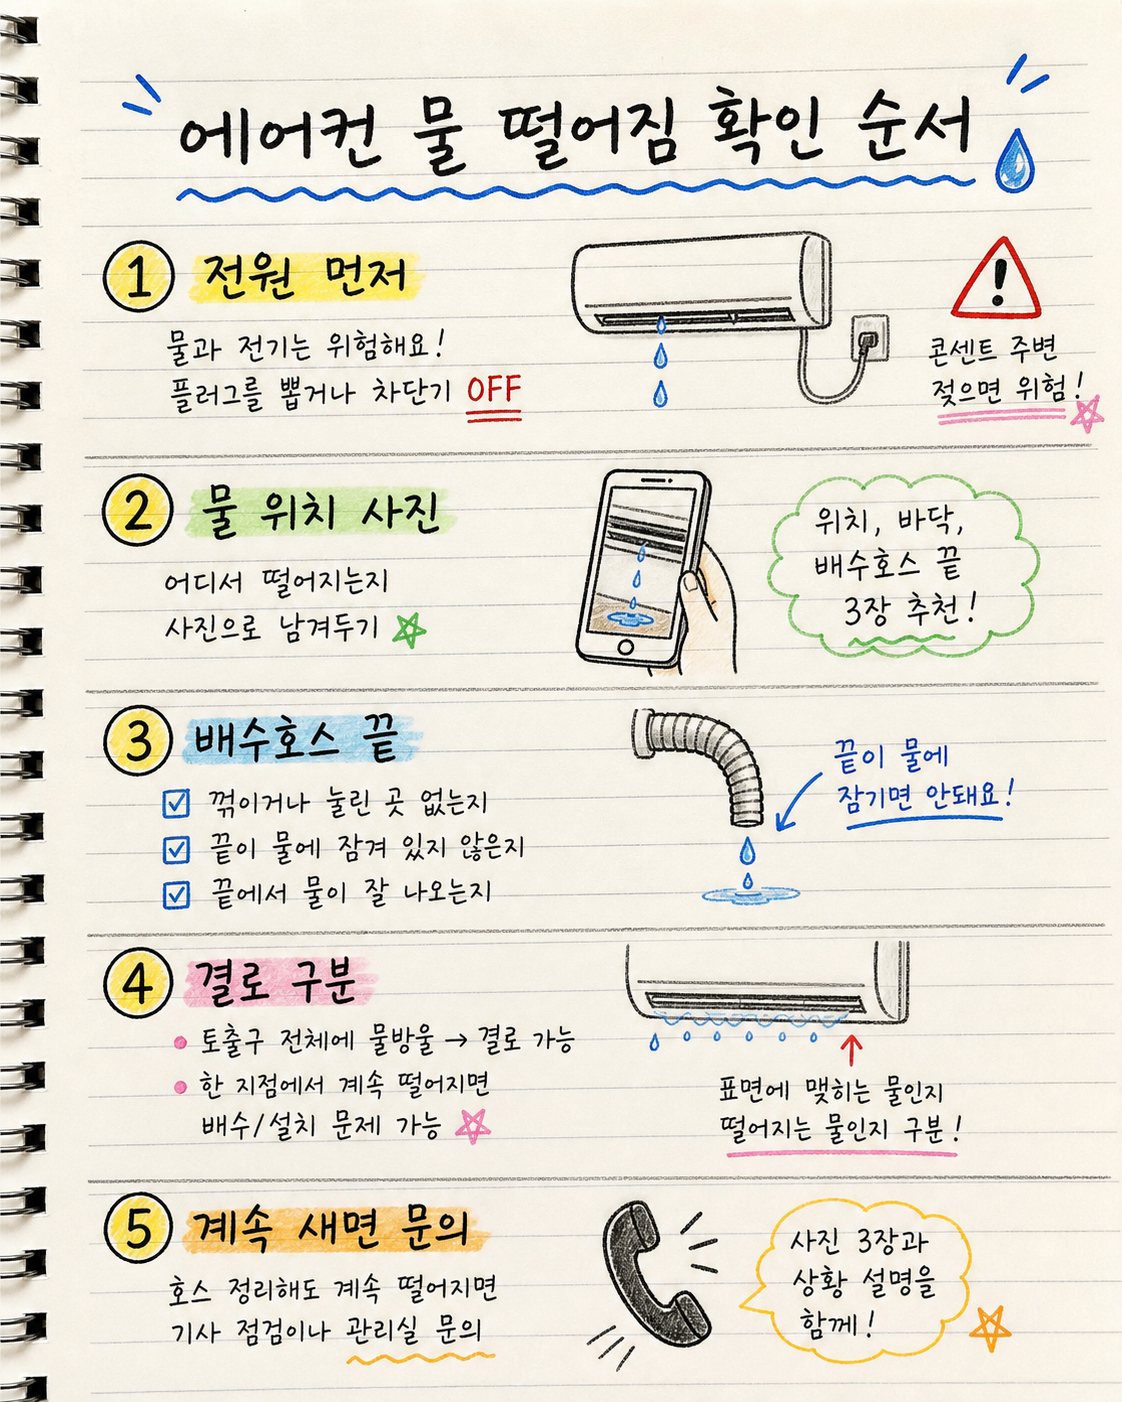 에어컨 물 떨어짐 확인 순서
1 전원 먼저
물과 전기는 위험해요!
플러그를 뽑거나 차단기 OFF
!
콘센트 주변
젖으면 위험!
2 물 위치 사진
어디서 떨어지는지
사진으로 남겨두기
위치, 바닥,
배수호스 끝
3장 추천!
3 배수호스 끝
꺾이거나 눌린 곳 없는지
끝이 물에 잠겨 있지 않은지
끝에서 물이 잘 나오는지
끝이 물에
잠기면 안돼요!
4 결로 구분
토출구 전체에 물방울 → 결로 가능
한 지점에서 계속 떨어지면
배수/설치 문제 가능
표면에 맺히는 물인지
떨어지는 물인지 구분!
5 계속 새면 문의
호스 정리해도 계속 떨어지면
기사 점검이나 관리실 문의
사진 3장과
상황 설명을
함께!